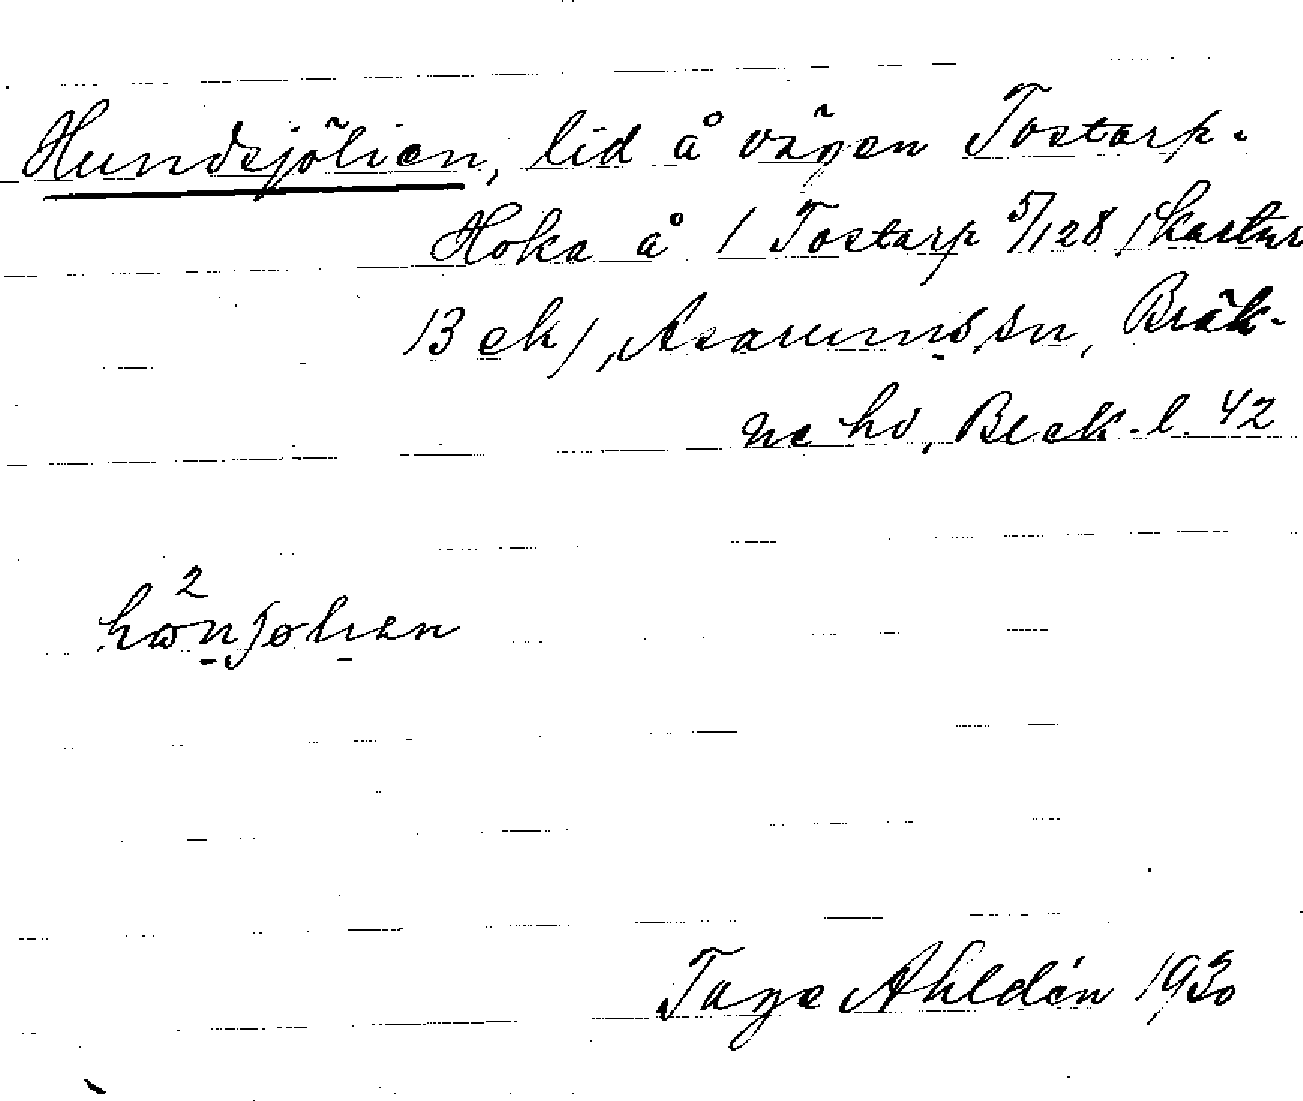 Hundsjölien, lid å vägen Tostarp-
Hoka å / Tostarp 5/128 / kartur
13 ek/, Asarums sn, Bräk-
ne hd, Blek. l. 42
hω²njølıen
Tage Ahldén 1930